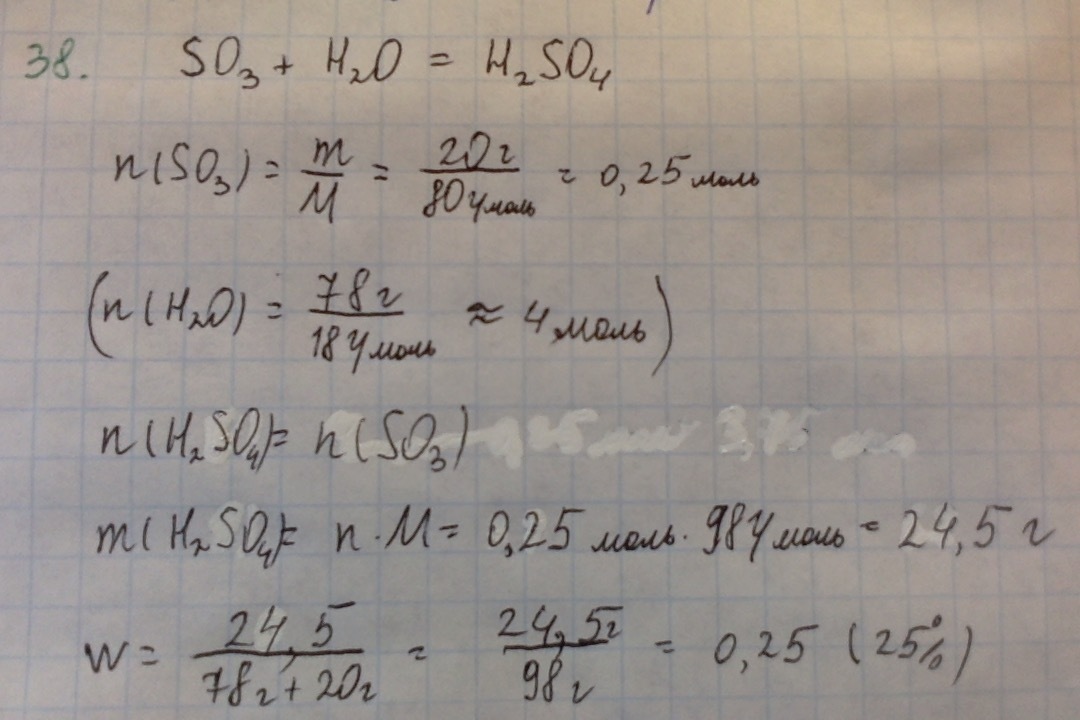 38. SO₃ + H₂O = H₂SO₄
n(SO₃) = m/M = 20г/80г/моль = 0,25 моль
(n(H₂O) = 78г/18г/моль ≈ 4 моль)
n(H₂SO₄) = n(SO₃)
m(H₂SO₄) = n · M = 0,25 моль · 98г/моль = 24,5 г
w = 24,5/78г+20г = 24,5г/98г = 0,25 (25%)